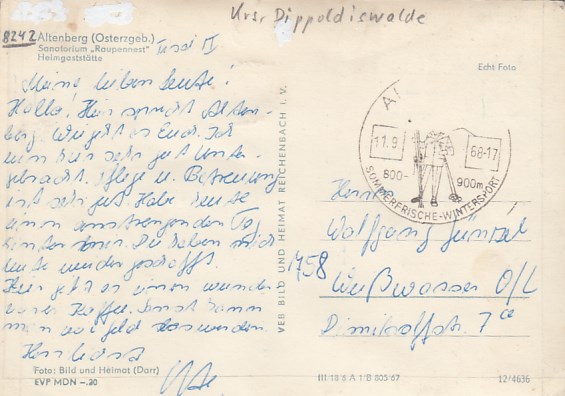 Krsr Dippoldiswalde
8242 Altenberg (Osterzgeb.)
Sanatorium „Raupennest"
Heimgaststätte
Echt Foto
Meine lieben
Hallo! Hier spricht Alten-
berg. Wie geht es Euch. Ich
bin hier sehr gut unter-
gebracht. Pflege u. Betreuung
ist sehr gut. Habe heute
einen anstrengenden Tag
hinter mir. Die haben mich
heute wieder geschafft.
Hier gibt es einen wunder-
baren Kaffee. Sonst kann
man nur Geld loswerden.
Foto: Bild und Heimat (Darr)
EVP MDN –.20
VEB BILD UND HEIMAT REICHENBACH I. V.
11.9. 68-17
800- 900m
SOMMERFRISCHE-WINTERSPORT
Herrn
Wolfgang
1758
Weißwasser O/L
Dimitroffstr.
III 18 6 A 1 B 805/67
12/4636